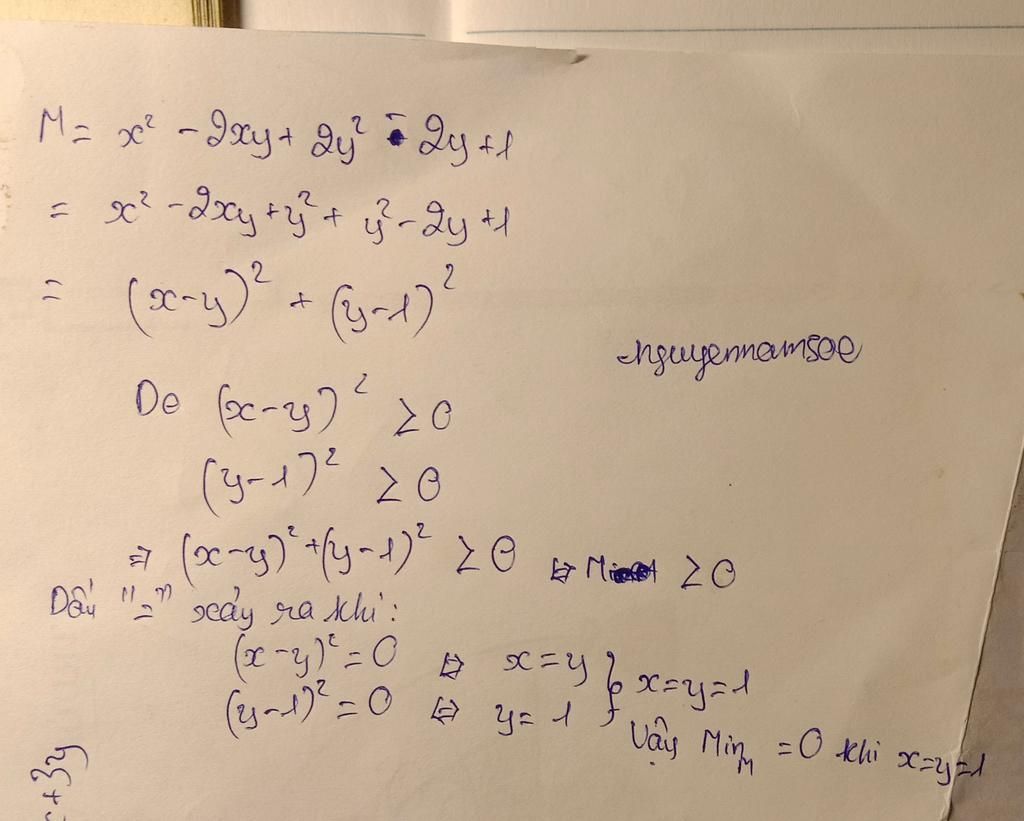 M = x² - 2xy + 2y² - 2y + 1
= x² - 2xy + y² + y² - 2y + 1
= (x-y)² + (y-1)²
nguyennam5oe
Do (x-y)² ≥ 0
(y-1)² ≥ 0
⇒ (x-y)² + (y-1)² ≥ 0 ⇔ M ≥ 0
Dấu "=" xảy ra khi:
(x-y)² = 0 ⇔ x = y } x = y = 1
(y-1)² = 0 ⇔ y = 1
Vậy Min_M = 0 khi x=y=1
+3y